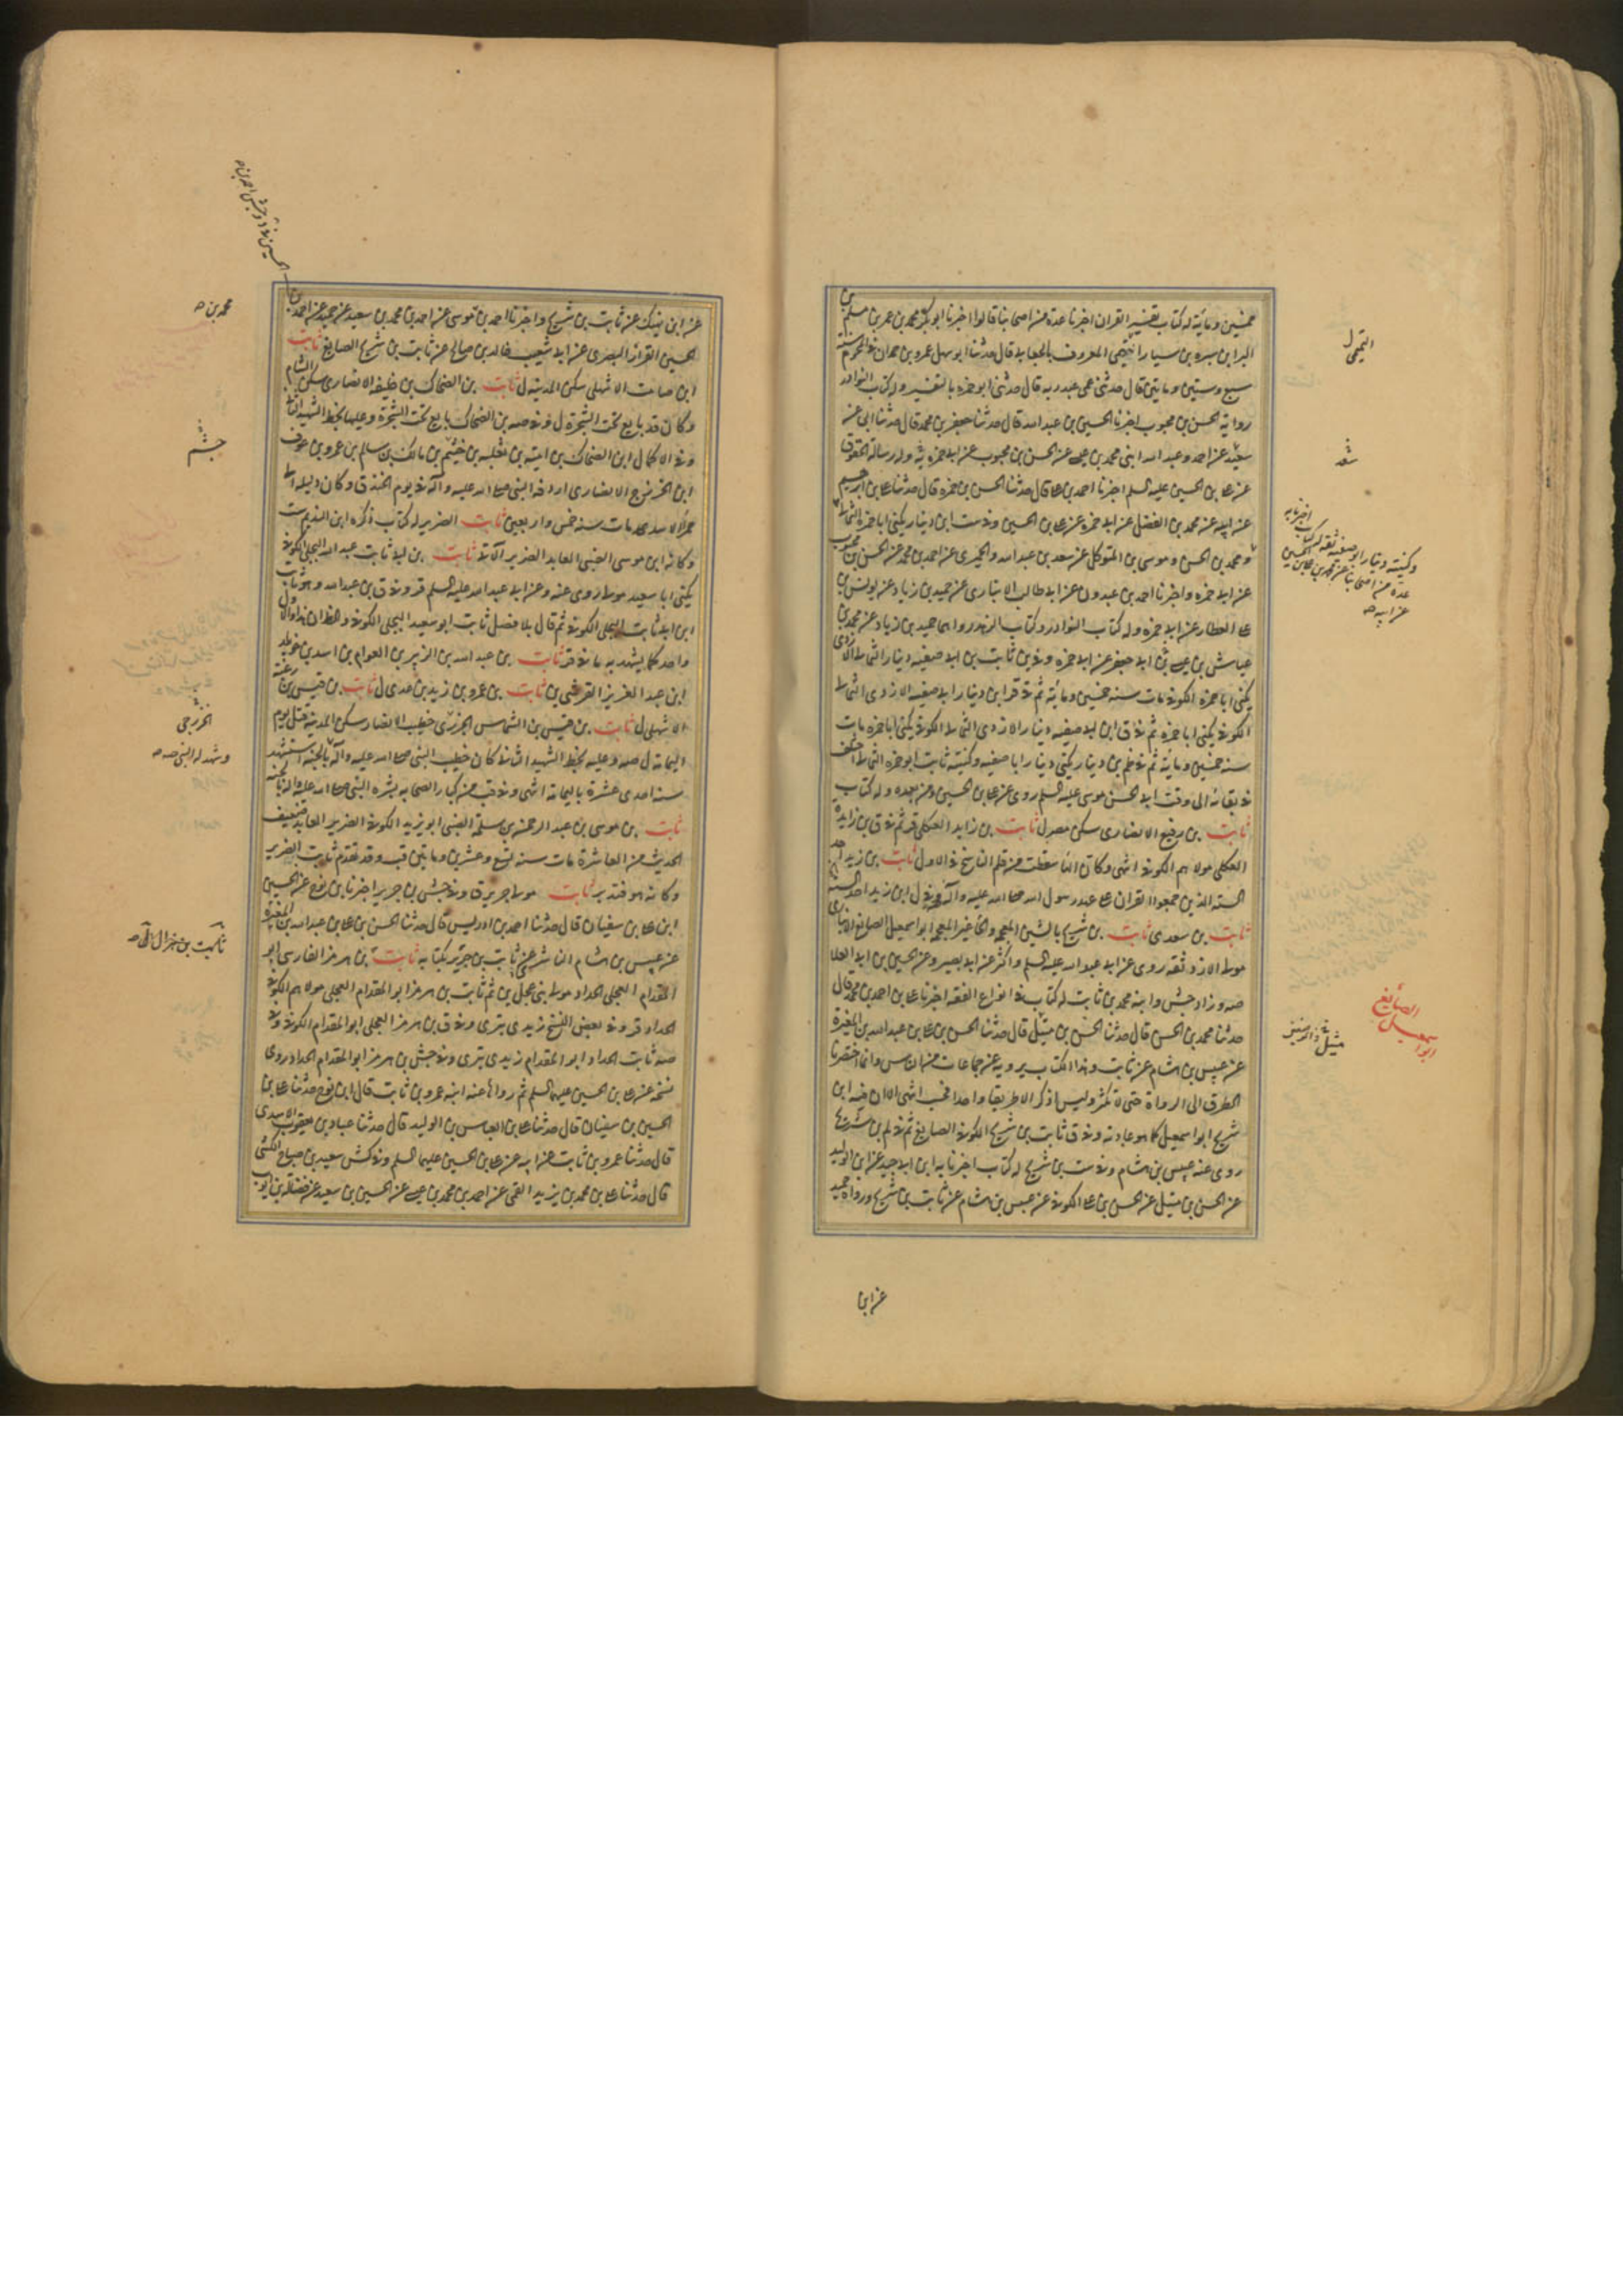 خمسين ومائة له كتاب تفسير القران اخبرنا عدة من اصحابنا قالوا اخبرنا ابو بكر محمد بن عمر بن سلم بن
البراء بن سبره بن سيار التميمي المعروف بالجعابي قال حدثنا ابو سهل عمرو بن حمدان في المحرم سنة
سبع وستين ومايتين قال حدثني عمي عبد ربه قال حدثني ابو حمزه بالتفسير وله كتاب النوادر
رواية الحسن بن محبوب اخبرنا الحسين بن عبد الله قال حدثنا جعفر بن محمد قال حدثنا ابي عن
سعد عن احمد وعبد الله ابني محمد بن عيسى عن الحسن بن محبوب عن ابي حمزه به وله رسالة الحقوق
عن علي بن الحسين عليه السلم اخبرنا احمد بن علي قال حدثنا الحسن بن حمزه قال حدثنا علي بن ابرهيم
عن ابيه عن محمد بن الفضل عن ابي حمزه عن علي بن الحسين وفي ست ابن دينار يكنى ابا حمزه الثمالي
ومحمد بن الحسن وموسى بن المتوكل عن سعد بن عبد الله والحميرى عن احمد بن محمد عن الحسن بن محبوب
عن ابي حمزه واخبرنا احمد بن عبدون عن ابي طالب الانبارى عن حميد بن زياد عن يونس بن
علي العطار عن ابي حمزه وله كتاب النوادر وكتاب الزهد رواهما حميد بن زياد عن محمد بن
عياش بن عيسى ابي جعفر عن ابي حمزه وفي بن ثابت بن ابي صفيه دينار الثمالي الازدى
يكنى ابا حمزه الكوفي مات سنه خمسين ومائة ثم في قر ابن دينار ابي صفيه الازدى الثمالي
الكوفي يكنى ابا حمزه ثم في ق ابن ابي صفيه دينار الازدى الثمالي الكوفي يكنى ابا حمزه مات
سنه خمسين ومائة ثم في ظم بن دينار يكنى دينار ابا صفيه وكنية ثابت ابو حمزه الثمالي اختلف
في بقائه الى وقت ابي الحسن موسى عليه السلم روى عن علي بن الحسين ومن بعده وله كتاب
ثابت بن رفيع الانصارى سكن مصر ل ثابت بن زايد العكلي قر ثم في ق بن زايده
العكلي مولاهم الكوفي انتهى وكان التا سقطت من قلم الناسخ في الاول ثابت بن زيد احد
السته الذين جمعوا القران على عهد رسول الله صلى الله عليه وآله وفي ل ابن زيد احد السته
ثابت بن سعدى ثابت بن شريح بالشين المعجمه والحا غير المعجمه ابو اسمعيل الصايغ الانبارى
مولى الازد ثقه روى عن ابي عبد الله عليه السلم واكثر عن ابي بصير وعن الحسين بن ابي العلا
صه وزاد جش وابنه محمد بن ثابت له كتاب في انواع الفقه اخبرنا علي بن احمد بن محمد قال
حدثنا محمد بن الحسن قال حدثنا الحسن بن متيل قال حدثنا الحسن بن علي بن عبد الله بن المغيرة
عن عبيس بن هشام عن ثابت وهذا الكتاب يرويه عنه جماعات من الناس وانما اختصرنا
الطرق الى الرواة حتى لا تكثر وليس اذكر الا طريقا واحدا فحسب انتهى الا ان فيه ابن
شريح ابو اسمعيل كما هو عادته وفي ق ثابت بن شريح الكوفي الصايغ ثم في لم بن شريح
روى عنه عبيس بن هشام وفي ست بن شريح له كتاب اخبرنا به ابن ابي جيد عن ابن الوليد
عن الحسن بن متيل عن الحسن بن علي الكوفي عن عبيس بن هشام عن ثابت بن شريح ورواه حميد
عن ابن
التميمي ل
سعد
وكنيته دينار ابو صفيه ثقه له كتاب اخبرنا به
عدة من اصحابنا عن محمد بن علي بن الحسين
عن ابيه
الصايغ
ابو اسمعيل
متيل
عن ابن نهيك عن ثابت بن شريح واخبرنا احمد بن موسى عن احمد بن محمد بن سعيد عن حميد عن احمد بن
الحسين القزاز البصرى عن ابي شعيب خالد بن صالح عن ثابت بن شريح الصايغ ثابت
ابن صامت الاشهلي سكن المدينه ل ثابت بن الضحاك بن خليفه الانصارى سكن الشام
وكان قد بايع تحت الشجرة ل وفي صه بن الضحاك بايع تحت الشجرة وعليها بخط الشهيد الثاني
وفي الاكمال ابن الضحاك بن اميه بن ثعلبه بن جشم بن مالك بن سالم بن عمرو بن عوف
ابن الخزرج الانصارى اردفه النبي صلى الله عليه وآله في يوم الخندق وكان دليله الى
حمراء الاسد مات سنه خمس واربعين ثابت الضرير له كتاب ذكره ابن النديم ست
وكانه ابن موسى الضبي العابد الضرير الاتي ثابت بن ابي ثابت عبد الله البجلي الكوفي
يكنى ابا سعيد مولى روى عنه وعن ابي عبد الله عليه السلم قر وفي ق بن عبد الله وهو ثابت
ابن ابي ثابت البجلي الكوفي ثم قال بلا فصل ثابت ابو سعيد البجلي الكوفي والظاهر ان هذا والاول
واحد كما يشهد به ما في قر ثابت بن عبد الله بن الزبير بن العوام بن اسد بن خويلد
ابن عبد العزيز القرشي ين ثابت بن عمرو بن زيد بن عدى ل ثابت بن قيس بن زعبة
الاشهلي ل ثابت بن قيس بن الشماس الخزرجى خطيب الانصار سكن المدينه قتل يوم
اليمامه ل صه وعليه بخط الشهيد الثاني كان خطيب النبي صلى الله عليه وآله بالجنه استشهد
سنه احدى عشرة باليمامه انتهى وفي قب من كبار الصحابه بشره النبي صلى الله عليه واله بالجنه
ثابت بن موسى بن عبد الرحمن بن سلمة الضبي ابو يزيد الكوفي الضرير العابد ضعيف
الحديث من العاشرة مات سنه تسع وعشرين ومايتين قب وقد تقدم ثابت الضرير
وكانه هو فتدبر ثابت مولى جرير ق وفي جش بن جرير اخبرنا بن نوح عن الحسين
ابن علي بن سفيان قال حدثنا احمد بن ادريس قال حدثنا الحسن بن علي بن عبد الله بن المغيرة
عن عبيس بن هشام الناشرى عن ثابت بن جرير بكتابه ثابت بن هرمز الفارسي ابو
المقدام العجلي الحداد مولى بني عجل ين ثم ثابت بن هرمز ابو المقدام العجلي مولاهم الكوفي
الحداد قر وفي بعض النسخ زيدى بترى وفي ق بن هرمز العجلي ابو المقدام الكوفي وفي
صه ثابت الحداد ابو المقدام زيدى بترى وفي جش بن هرمز ابو المقدام الحداد روى
نسخه عن علي بن الحسين عليهما السلم ثم رواها عنه ابنه عمرو بن ثابت قال ابن نوح حدثنا علي بن
الحسين بن سفيان قال حدثنا علي بن العباس بن الوليد قال حدثنا عباد بن يعقوب الاسدى
قال حدثنا عمرو بن ثابت عن ابيه عن علي بن الحسين عليهما السلم وفي كش سعيد بن صباح الكشي
قال حدثنا علي بن محمد بن يزيد القمي عن احمد بن محمد بن عيسى عن الحسين بن سعيد عن فضاله بن ايوب
محمد بن
جشم
الخزرجى
وشهد له النبي صه
ثابت بن هزال